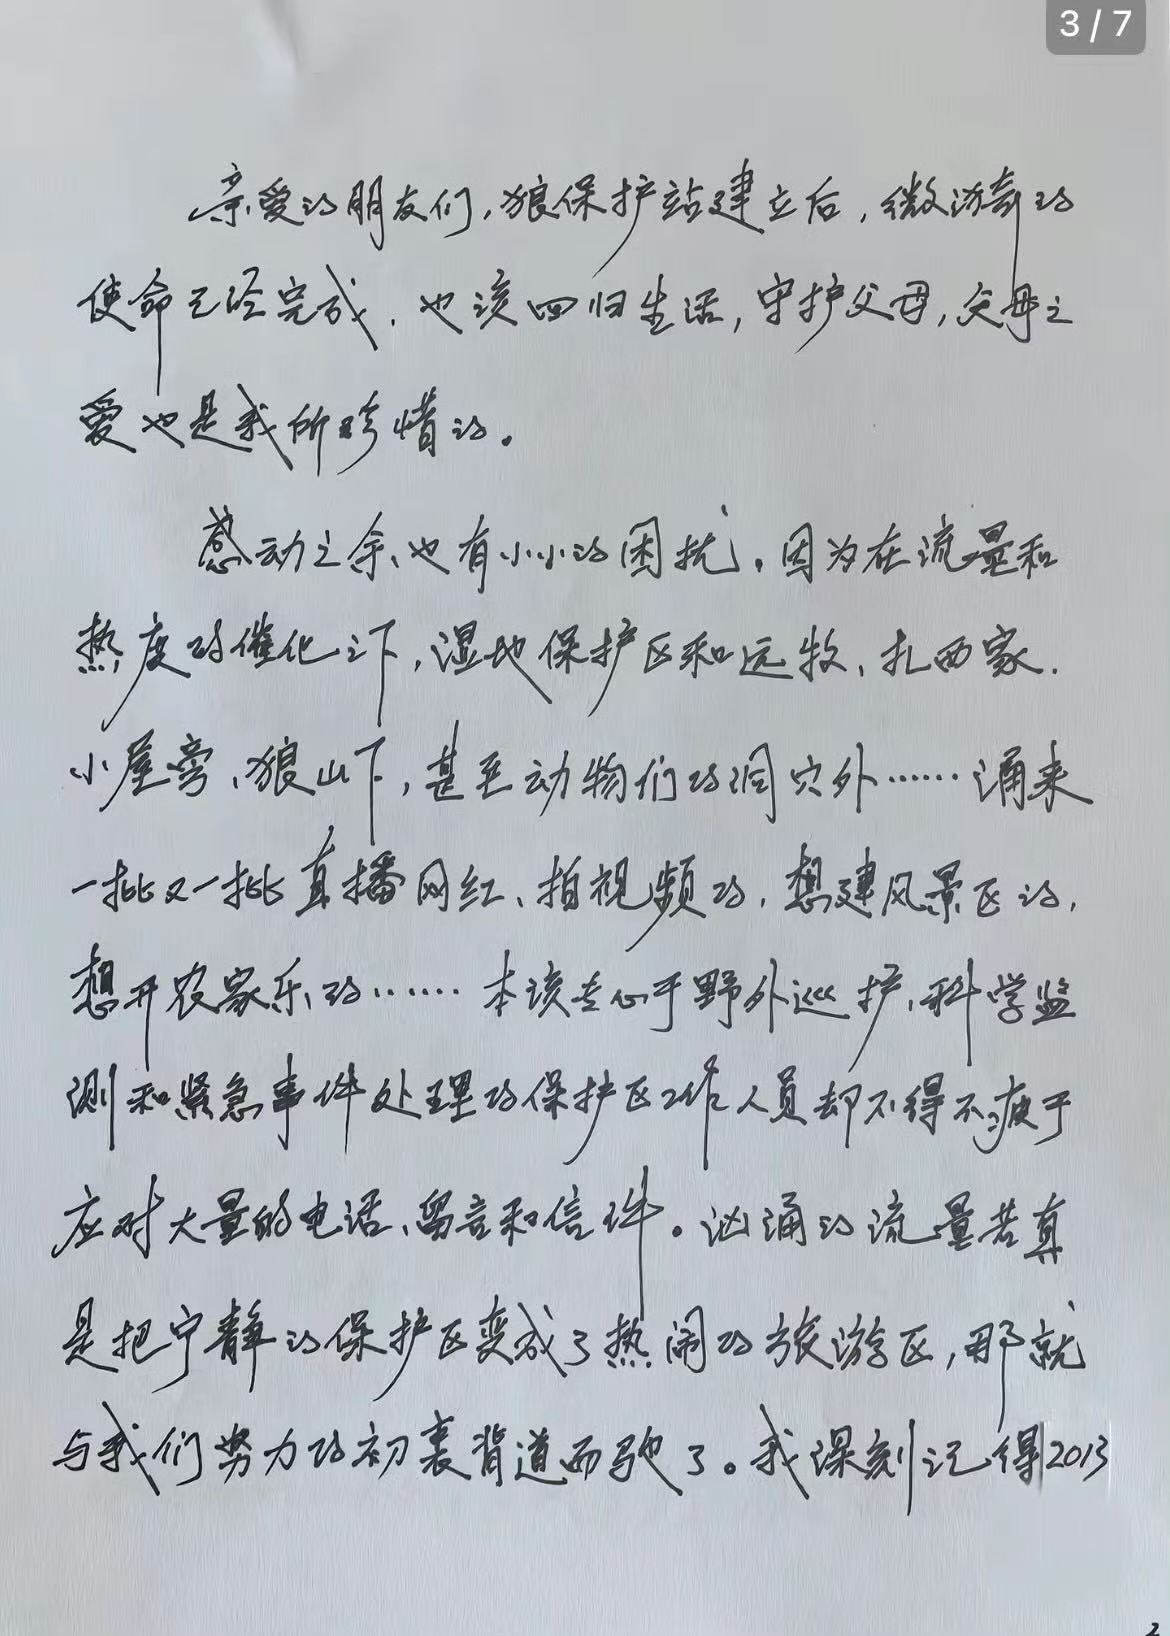 3 / 7
亲爱的朋友们，狼保护站建立后，微漪的
使命已经完成，也该回归生活，守护父母，父母之
爱也是我所珍惜的。
感动之余、也有小小的困扰，因为在流量和
热度的催化之下，湿地保护区和远牧、扎西家、
小屋旁、狼山下，甚至动物们的洞穴外……涌来
一批又一批直播网红、拍视频的，想建风景区的，
想开农家乐的……本该专心于野外巡护、科学监
测和紧急事件处理的保护区工作人员却不得不疲于
应对大量的电话、留言和信件。汹涌的流量若真
是把宁静的保护区变成了热闹的旅游区，那就
与我们努力的初衷背道而驰了。我深刻记得2013
2